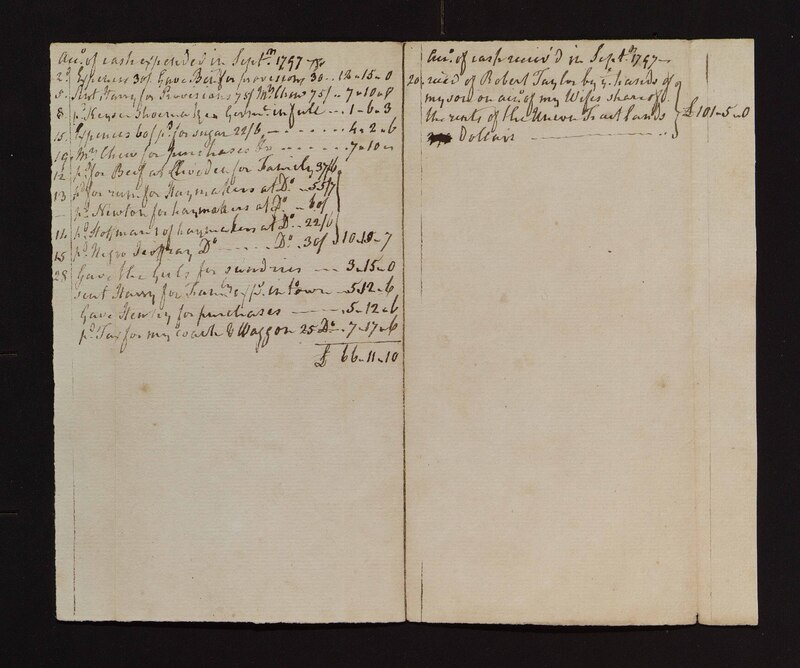 Acco. of cash expended in Septm. 1797
2d Expences 30/ Gave Ben for provisions 30 .. 12-15-0
5 Sent Harry for Provisions 75/ Mrs Chew 75/ .. 7-10-0
8 pd. Keyser Shoemaker in Germn. in full .. 1-6-3
15 Expences 60/ pd. for sugar 22/6 - - - - 4-2-6
19 Mrs Chew for purchases &c - - - - 7-10-
12 pd. for Beef at Clivoden for Family 37/6
13 pd. for rum for Haymakers at Do. 55/7
- pd. Newton for haymakers at Do. 60/
14 pd. Hoffman of haymakers at Do. 22/6
15 pd. Negro Do. - - - Do. 30/ 10-10-7
28 Gave the Girls for sundries - - 3-15-0
sent Harry for Family in town - 5-12-6
Gave Henry for purchases - 5-12-6
pd. Tax for my coach & Waggon 25 Ds - 7-17-6
£ 66-11-10
Acco. of cash receiv'd in Septm. 1797
20 reced of Robert Taylor by ye. hands of
my son on acco. of my Wifes share of
the rents of the Union Tract lands £ 101-5-0
Dollars